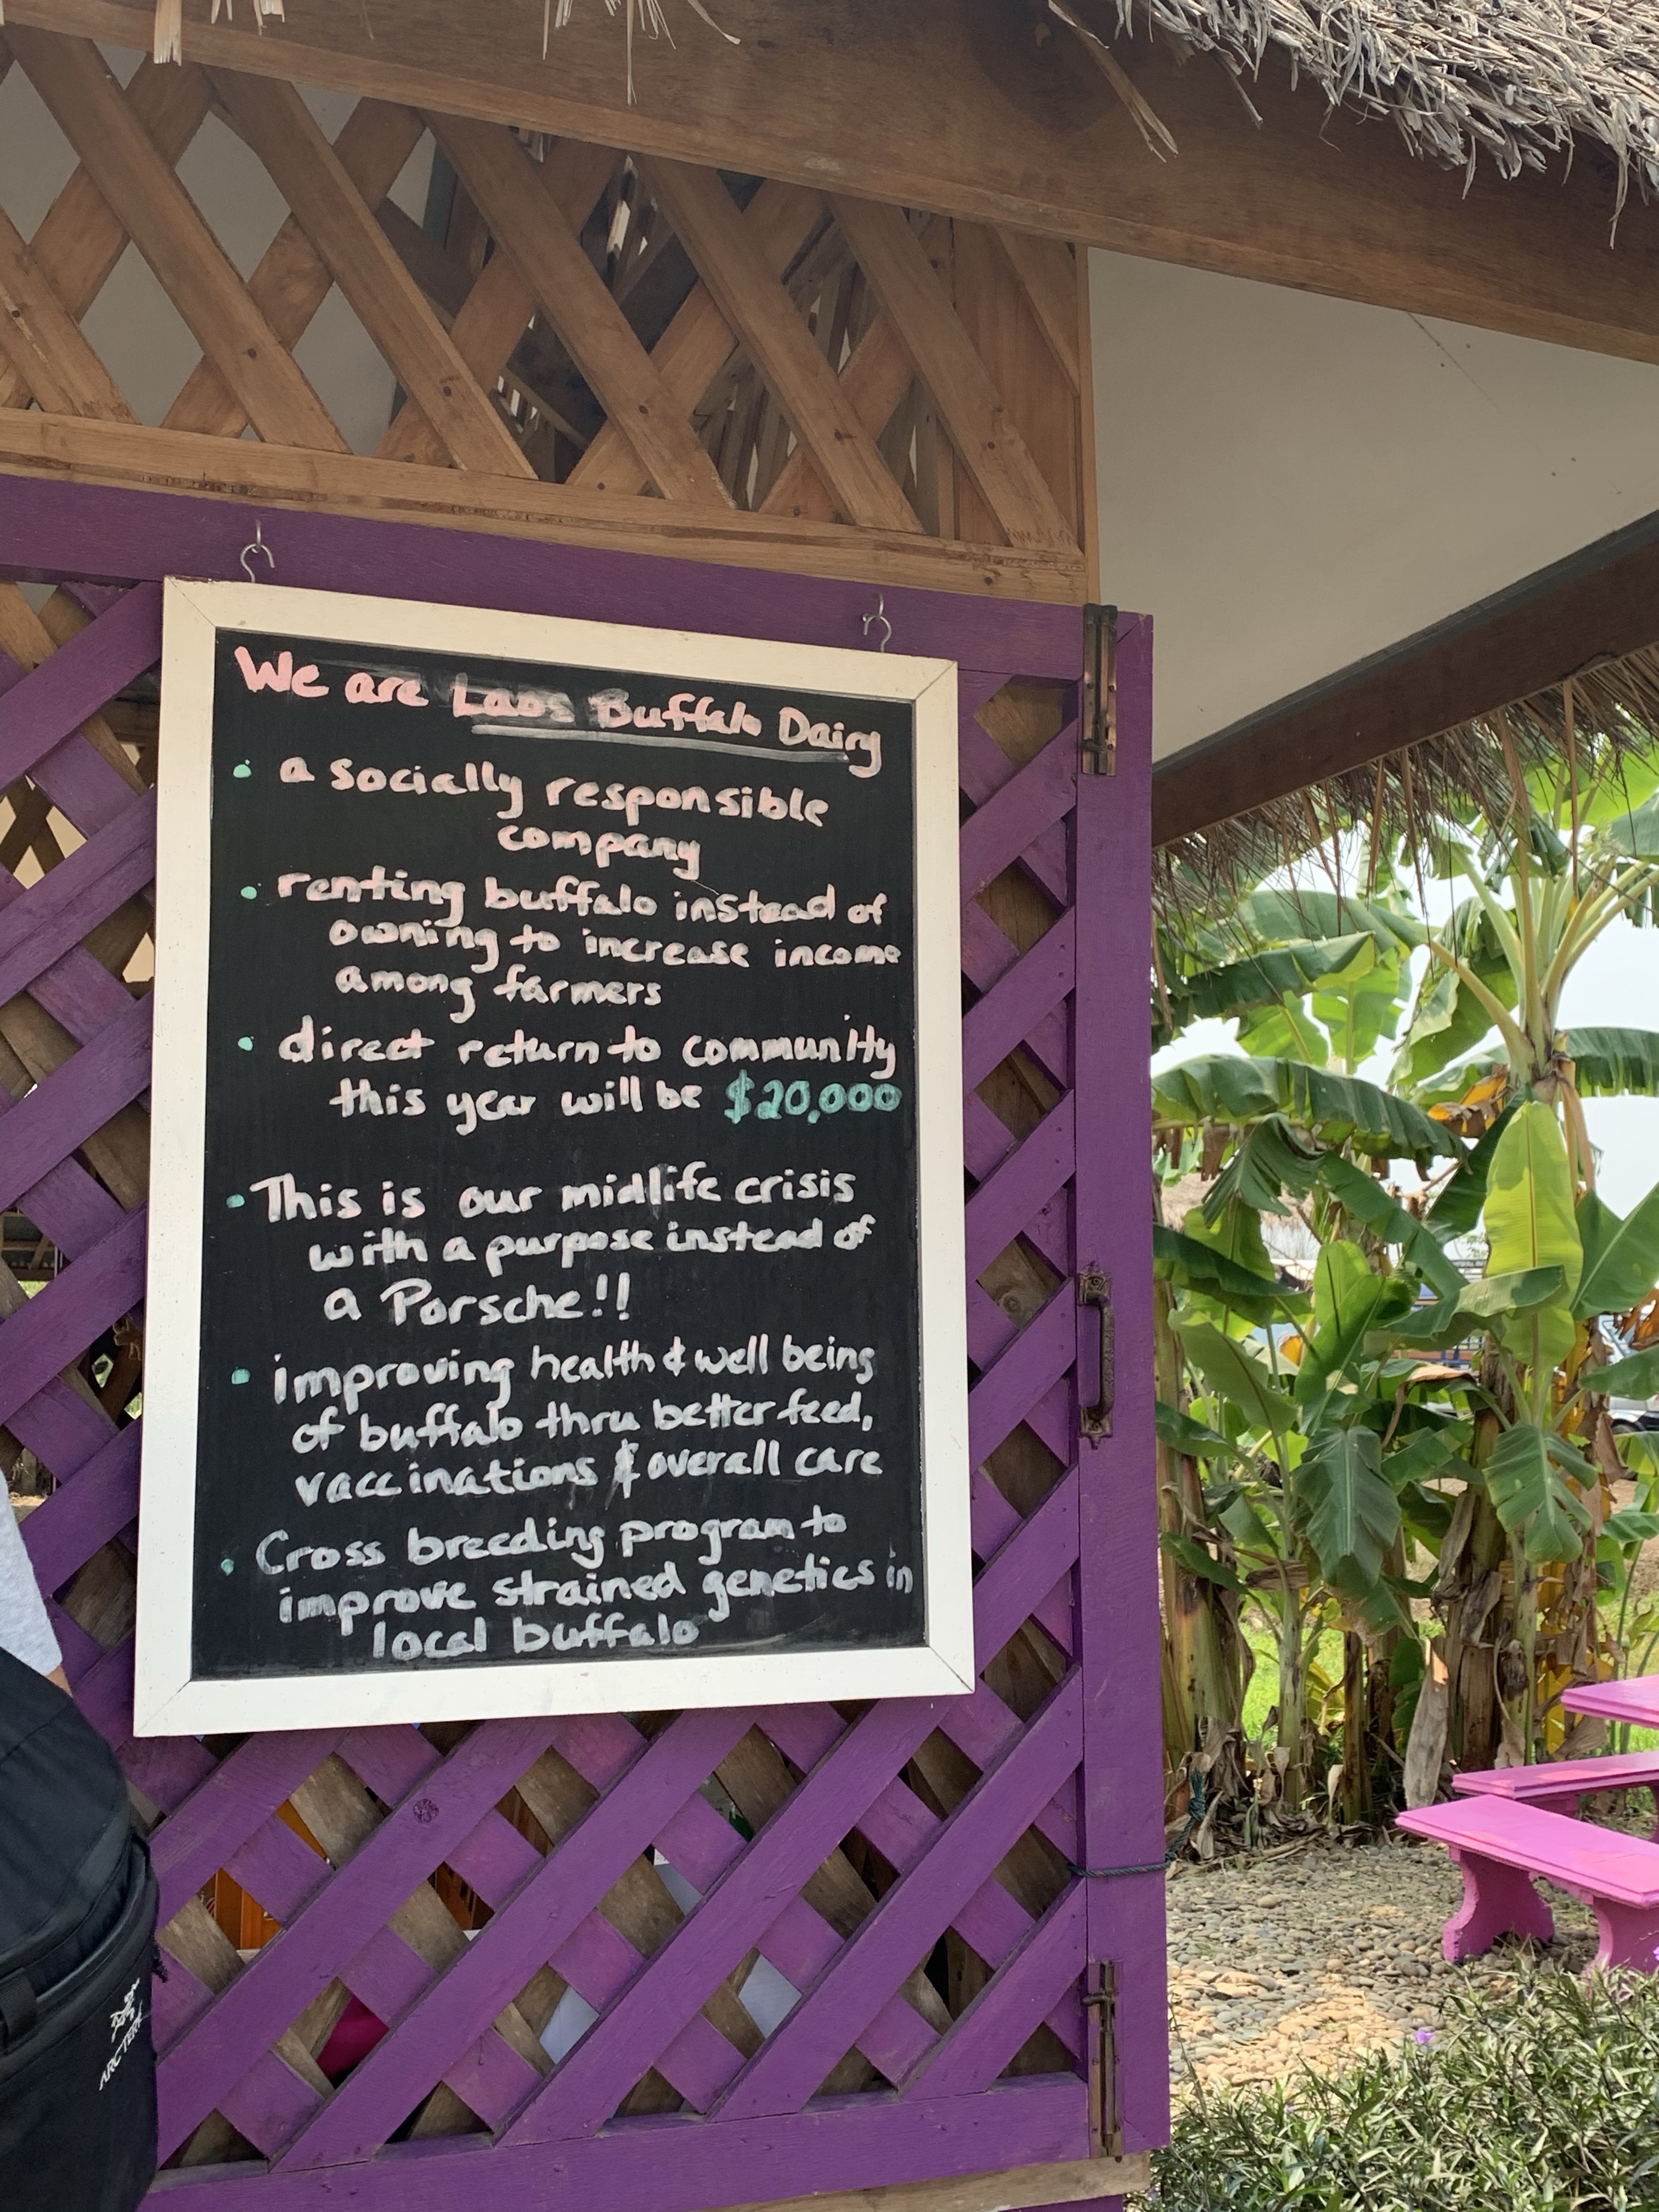 We are Laos Buffalo Dairy
• a socially responsible
company
• renting buffalo instead of
owning to increase income
among farmers
• direct return to community
this year will be $20,000
• This is our midlife crisis
with a purpose instead of
a Porsche!!
• improving health & well being
of buffalo thru better feed,
vaccinations & overall care
• Cross breeding program to
improve strained genetics in
local buffalo
ARC'TERY